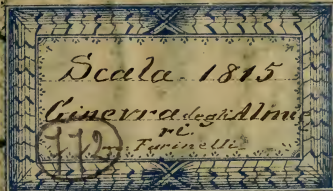 Scala 1815
Ginevra degli Almie
ri.
m. Farinelli
772